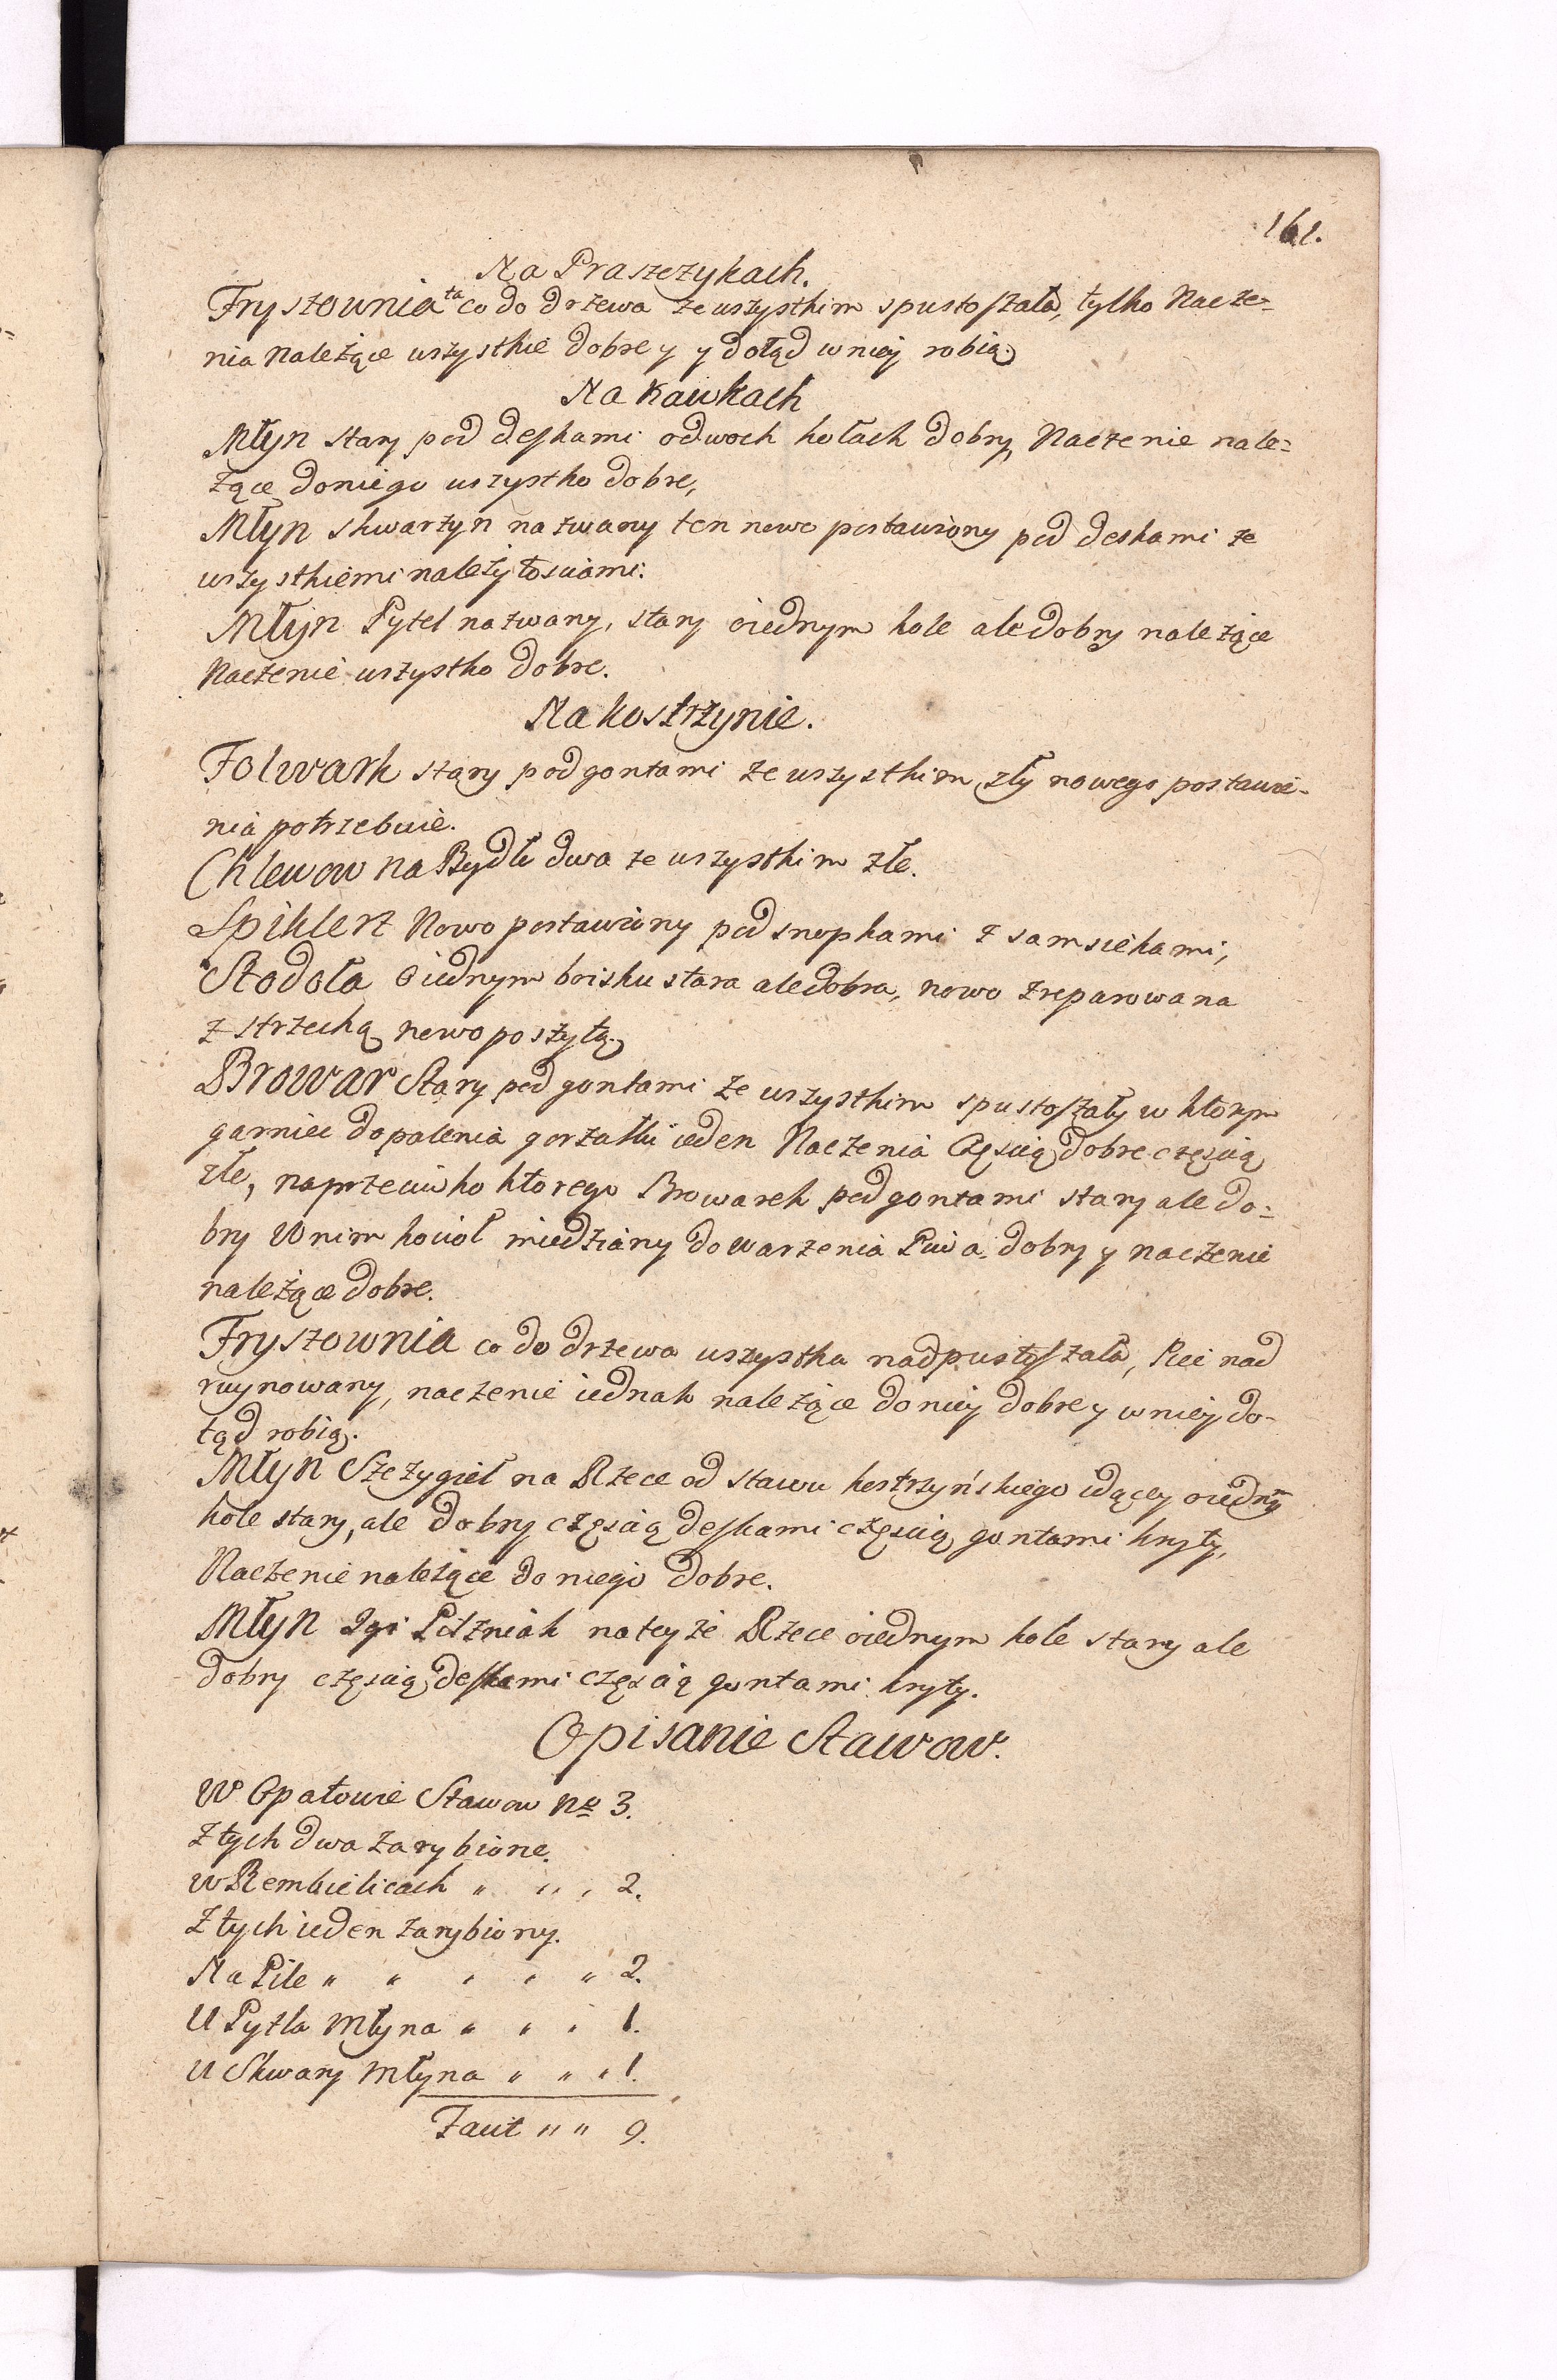 161.
Na Praszczykach.
Fryszownia ta co do drzewa ze wszystkim spustoszała, tylko Nacze=
nia należące wszystkie dobre y y dotąd w niey robią.
Na Kawkach
Młyn stary pod deskami o dwoch kołach dobry, Naczenie nale=
żące do niego wszystko dobre,
Młyn Skwarzyn nazwany ten nowo postawiony pod deskami ze
wszystkiemi należytosciami.
Młyn Pytel nazwany, stary o iednym kole ale dobry należące
Naczenie wszystko dobre.
Na kostrzynie.
Folwark stary pod gontami ze wszystkim zły nowego postawie-
nia potrzebuie.
Chlewow na Bydło dwa ze wszystkim złe.
Spiklerz Nowo postawiony pod snopkami z samsiekami,
Stodoła o iednym boisku stara ale dobra, nowo zreparowana
z strzechą nowo poszytą.
Browar Stary pod gontami ze wszystkim spustoszały w ktorym
garniec do palenia gorzałki ieden Naczenia Częscią dobre częscią
złe, naprzeciwko ktorego Browarek pod gontami stary ale do=
bry W nim kocioł miedziany do warzenia Piwa, dobry y naczenie
należące dobre.
Fryszownia co do drzewa wszystka nadpustoszała, Piec nad
ruynowany, naczenie iednak należące do niey dobre y w niey do-
tąd robią.
Młyn Szczygieł na Rzece od stawu kostrzyńskiego idącey o iednym
kole stary, ale dobry częscią deskami częscią gontami kryty,
Naczenie należące do niego dobre.
Młyn 2gi Pilzniak na teyże Rzece o iednym kole stary ale
dobry częscią deskami częscią gontami kryty.
Opisanie Stawow.
W Opatowie Stawow No 3.
Z tych dwa zarybione.
w Rembielicach " " " 2.
Z tych ieden zarybiony.
Na Pile " " " " " 2.
U Pytla Młyna " " " 1.
U Skwary Młyna " " " 1.
Facit " " 9.